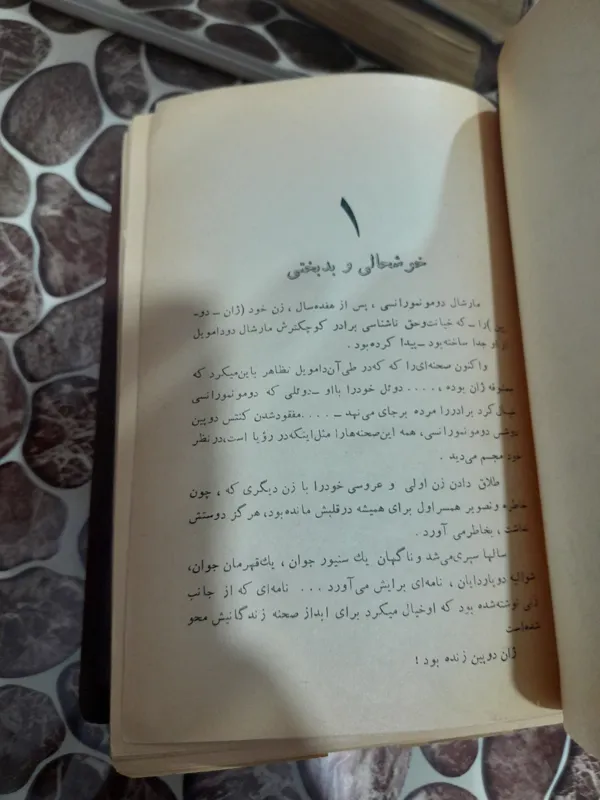 ۱
خوشحالی و بدبختی
مارشال دومونمورانسی ، پس از هفده‌سال ، زن خود (ژان ــ دوـ
پین )را ــ که خیانت‌وحق ناشناسی برادر کوچکترش مارشال دودامویل
از او جدا ساخته‌بود ــ پیدا کرده‌بود .
واکنون صحنه‌ای‌را که که‌در طی‌آن‌دامویل تظاهر باین‌میکرد که
معشوقه ژان بوده ، . . . . دوئل خودرا بااو ــ دوئلی که دومونمورانسی
خیال کرد برادررا مرده برجای می‌نهد ــ . . . . مفقودشدن کنتس دوپین
دوشس دومونمورانسی، همه این‌صحنه‌هارا مثل‌اینکه‌در رؤیا است،درنظر
خود مجسم می‌دید .
طلاق دادن زن اولی و عروسی خودرا با زن دیگری که ، چون
خاطره وتصویر همسراول برای همیشه درقلبش مانده‌بود، هرگز دوستش
نداشت ، بخاطرمی آورد .
سالها سپری‌می‌شد وناگهان یك سنیور جوان ، یك‌قهرمان جوان،
شوالیه دوپاردایان ، نامه‌ای برایش می‌آورد . . . نامه‌ای که از جانب
زنی نوشته‌شده بود که اوخیال میکرد برای ابداز صحنه زندگانیش محو
شده‌است
ژان دوپین زنده بود !